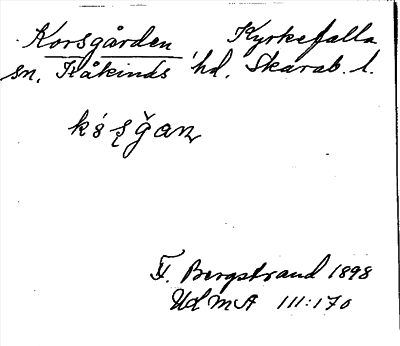 Korsgården, Kyrkefalla
sn, Kåkinds hd, Skarab. l.
F. Bergstrand 1898
Ud M A III:170